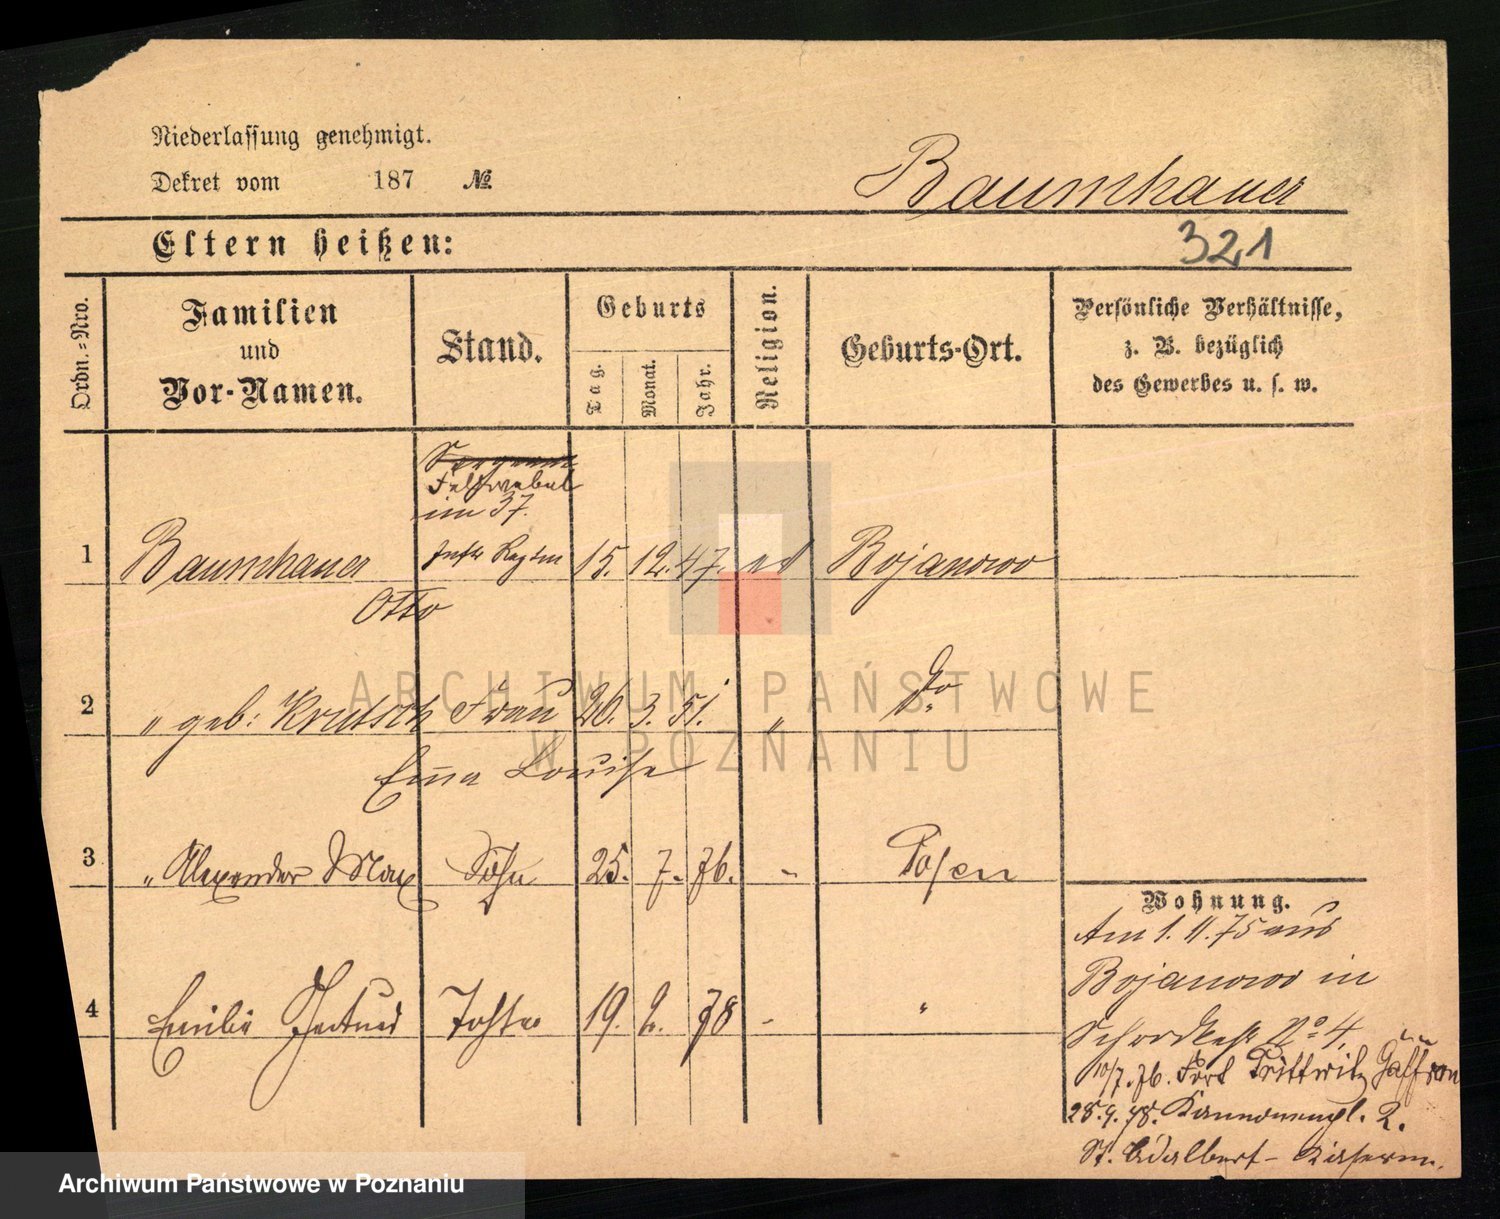 Niederlassung genehmigt.
Dekret vom 187 №
Baumhauer
Eltern heißen:
321
Ordn.=Nro.
Familien
und
Vor-Namen.
Stand.
Geburts
Tag.
Monat.
Jahr.
Religion.
Geburts-Ort.
Persönliche Verhältnisse,
z. B. bezüglich
des Gewerbes u. s. w.
Feldwebel
im 37.
1 Baumhauer Inftr Regim 15. 12. 47. ev Bojanowo
Otto
2 " geb: Krutsch Frau 26. 3. 51. " do
Emma Louise
3 " Alexander Max Sohn 25. 7. 76. " Posen
4 Emilie Gertrud Tochter 19. 2. 78 " "
Wohnung.
Am 1. 11. 75 aus
Bojanowo in
No 4.
10/7. 76. Fort Prittwitz Gaffron
28. 9. 78. 2.
St. Adalbert-Kaserne.
ARCHIWUM PAŃSTWOWE
W POZNANIU
Archiwum Państwowe w Poznaniu